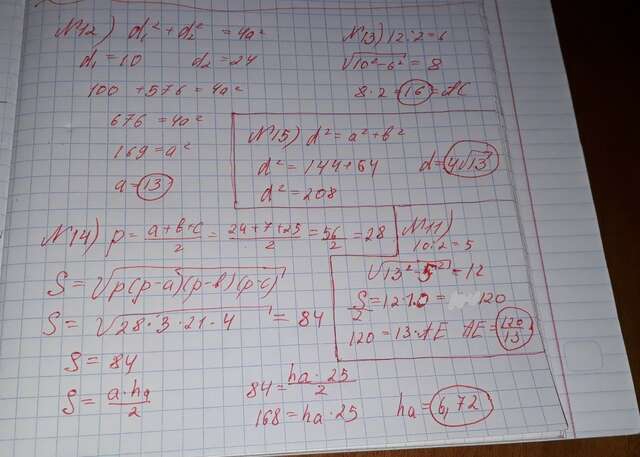 №12) d₁² + d₂² = 4a²
d₁ = 10 d₂ = 24
100 + 576 = 4a²
676 = 4a²
169 = a²
a = 13
№13) 12:2 = 6
√10² - 6² = 8
8·2 = 16 = AC
№15) d² = a² + b²
d² = 144 + 64
d² = 208
d = 4√13
№14) p = (a+b+c)/2 = (24+7+25)/2 = 56/2 = 28
S = √p(p-a)(p-b)(p-c)
S = √28·3·21·4 = 84
S = 84
S = (a·hₐ)/2
84 = (ha·25)/2
168 = ha·25
ha = 6,72
№11)
10:2 = 5
√13² - 5² = 12
S/2 = 12·10 = 120
120 = 13·AE AE = 120/13